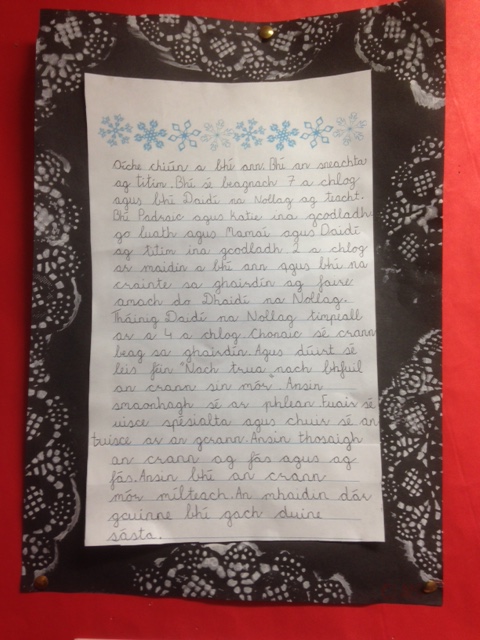 Oíche chiúin a bhí ann. Bhí an sneachta
ag titim. Bhí sé beagnach 7 a chlog
agus bhí Daidí na Nollag ag teacht.
Bhí Padraic agus Katie ina gcodladh
go luath agus Mamaí agus Daidí
ag titim ina gcodladh 2 a chlog
ar maidin a bhí ann agus bhí na
crainte sa ghairdín ag faire
amach do Dhaidí na Nollag.
Tháinig Daidí na Nollag timpeall
ar a 4 a chlog. Chonaic sé crann
beag sa ghairdín. Agus dúirt sé
leis féin "Nach trua nach bhfuil
an crann sin mór". Ansin
smaonhagh sé ar phlean. Fuair sé
uisce spésialta agus chuir sé an
tuisce ar an gcrann. Ansin thosaigh
an crann ag fás agus ag
fás. Ansin bhí an crann
mór mílteach. An mhaidin dár
gcuinne bhí gach duine
sásta.